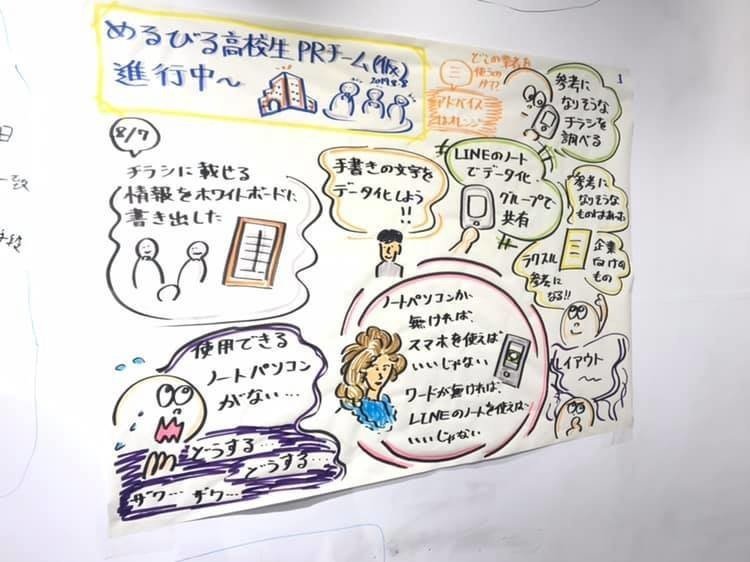 めるびる高校生PRチーム(仮)
2019.8.8
進行中〜
8/7
チラシに載せる
情報をホワイトボードに
書き出した
手書きの文字を
データ化しよう
!!
LINEのノート
でデータ化
グループで
共有
三
アドバイス
はオレンジ
1
参考に
なりそうな
チラシを
調べる
参考に
なりそうな
ものはあれ
企業
向けの
もの
ラクスル
参考に
なる!!
レイアウト
〜
使用できる
ノートパソコン
がない…
どうする…
どうする…
ザワ…ザワ…
ノートパソコンが
無ければ、
スマホを使えば
いいじゃない
ワードが無ければ、
LINEのノートを使えば
いいじゃない